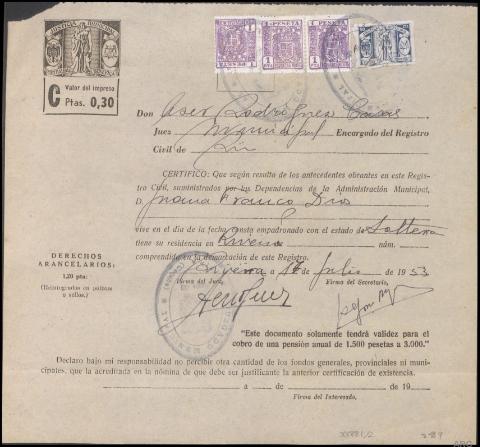 JUSTICIA MUNICIPAL
C Valor del impreso
Ptas. 0,30
1 PESETA 1 PESETA
Don Aser Rodríguez Casas
Juez Municipal Encargado del Registro
Civil de
CERTIFICO: Que según resulta de los antecedentes obrantes en este Regis-
tro Civil, suministrados por las Dependencias de la Administración Municipal,
D. Juana Franco Dios
vive en el día de la fecha y consta empadronado con el estado de Soltera
tiene su residencia en Riveira núm.
comprendido en la demarcación de este Registro.
Riveira a 17 de Julio de 1953
Firma del Juez, Firma del Secretario,
DERECHOS
ARANCELARIOS:
1,20 pta:
(Reintegrados en pólizas
o sellos.)
"Este documento solamente tendrá validez para el
cobro de una pensión anual de 1.500 pesetas a 3.000."
Declaro bajo mi responsabilidad no percibir otra cantidad de los fondos generales, provinciales ni muni-
cipales, que la acreditada en la nómina de que debe ser justificante la anterior certificación de existencia.
a de de 19
Firma del Interesado,